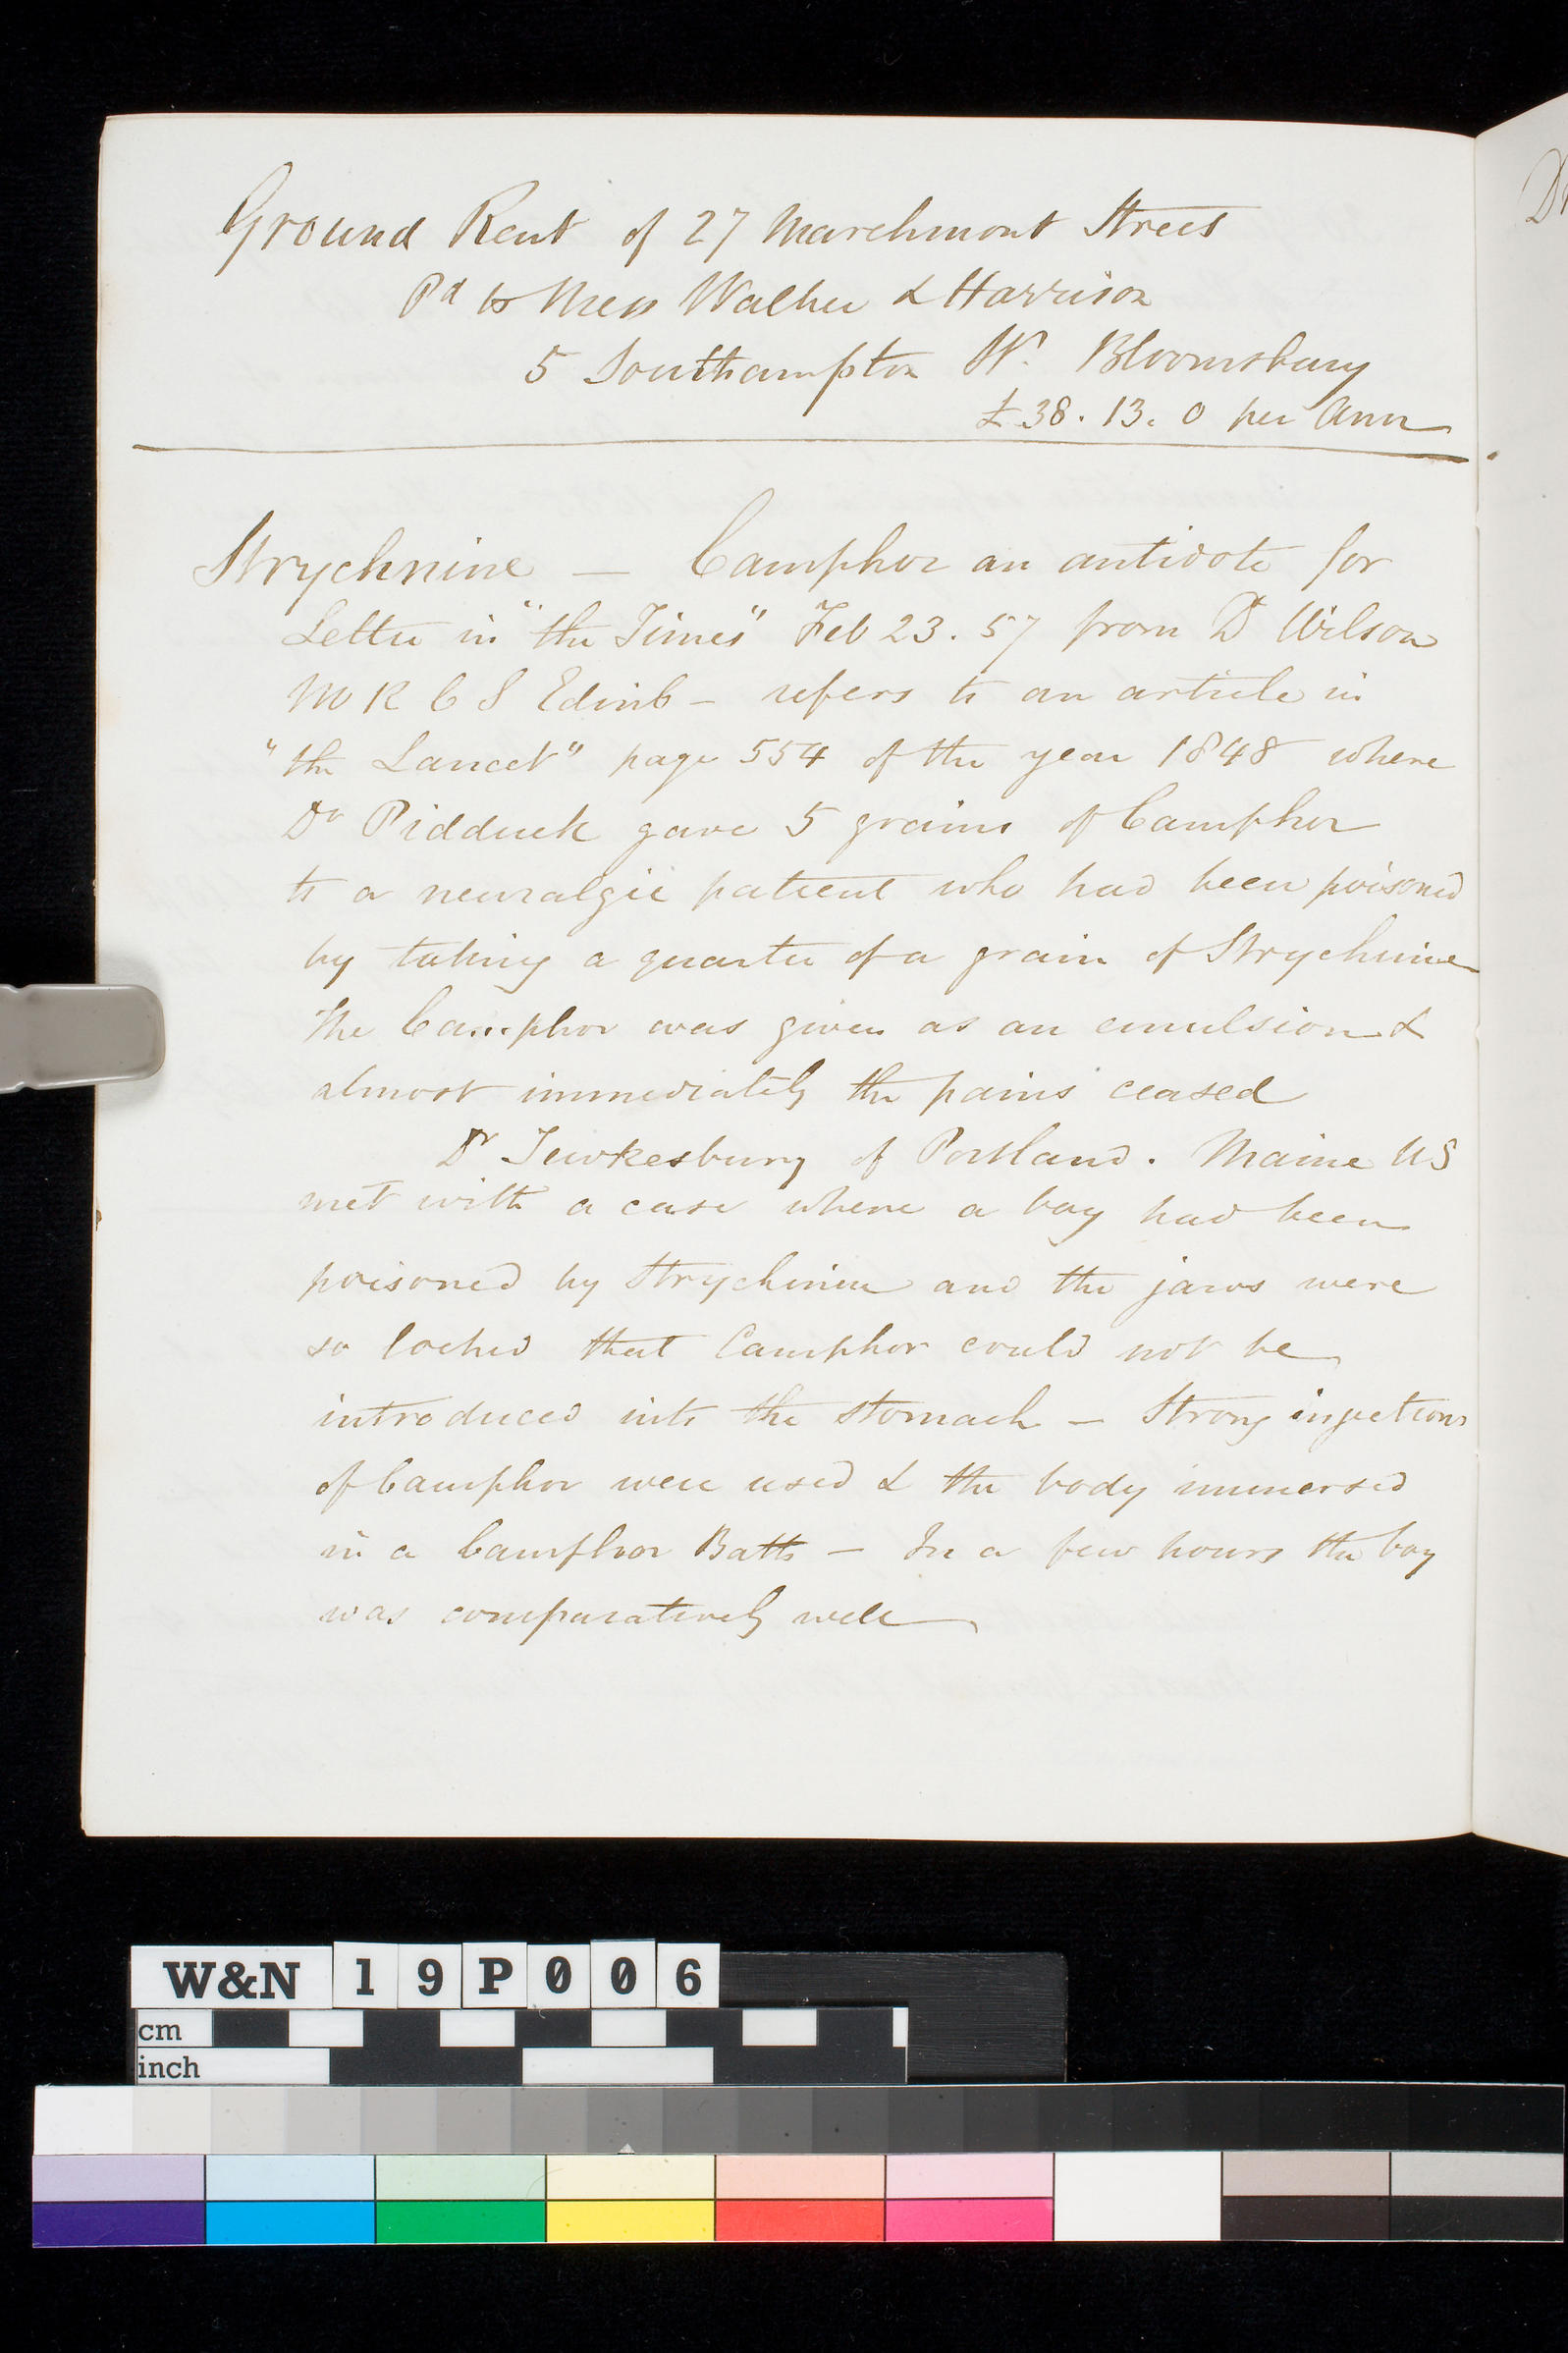 Ground Rent of 27 Marchmont Street
Pd to Mess Walker & Harrison
5 Southampton St. Bloomsbury
£38. 13. 0 per Ann
Strychnine — Camphor an antidote for
Letter in "the Times" Feb 23. 57 from Dr Wilson
M R C S Edinb – refers to an article in
"the Lancet" page 554 of the year 1848 where
Dr Pidduck gave 5 grains of Camphor
to a neuralgic patient who had been poisoned
by taking a quarter of a grain of Strychnine
The Camphor was given as an emulsion &
almost immediately the pains ceased
Dr Tewkesbury of Portland. Maine US
met with a case where a boy had been
poisoned by Strychnine and the jaws were
so locked that Camphor could not be
introduced into the stomach – Strong injections
of Camphor were used & the body immersed
in a Camphor Bath – In a few hours the boy
was comparatively well
W&N 19P006
cm
inch